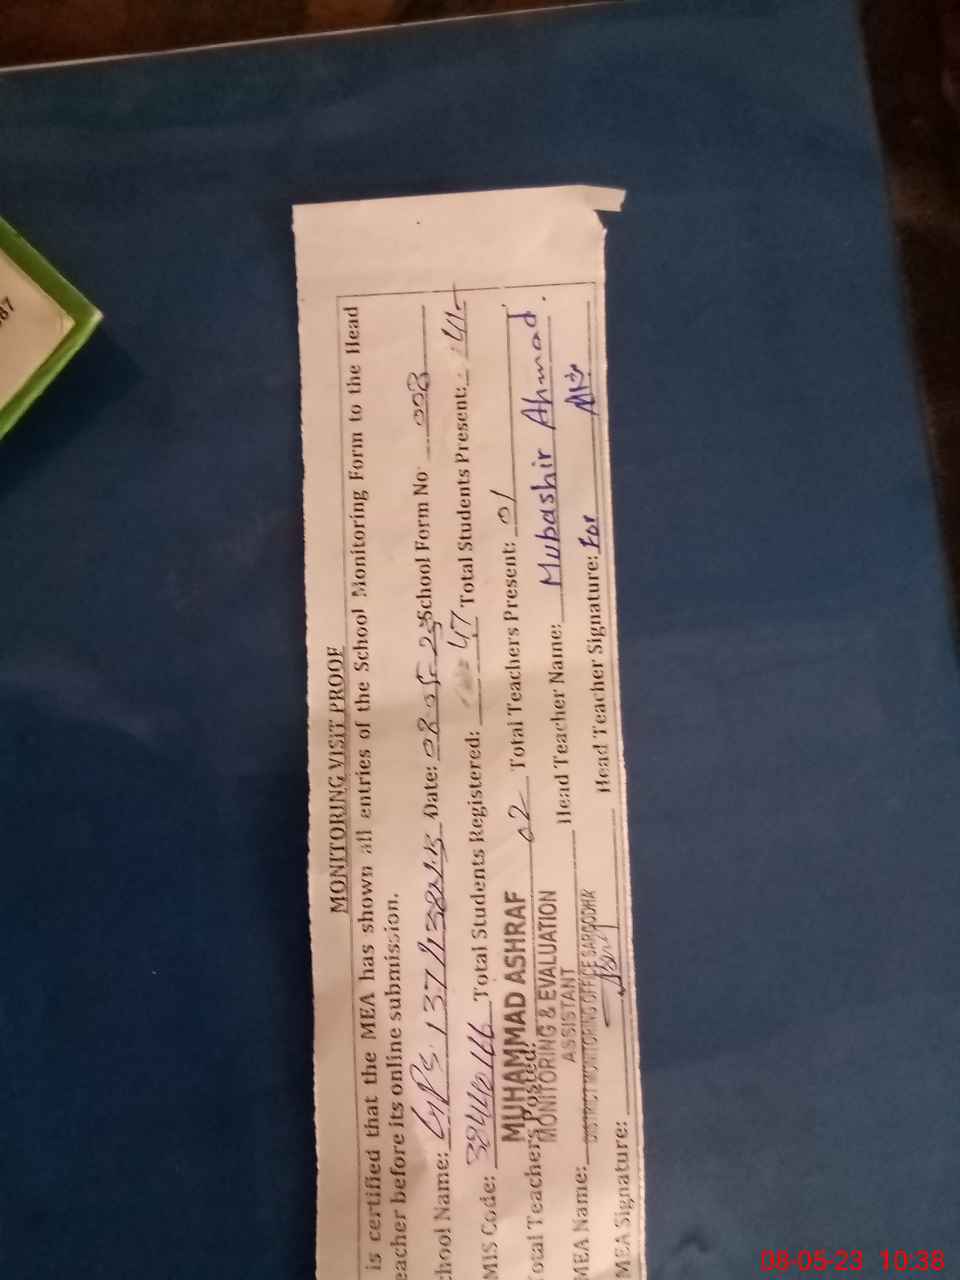 MONITORING VISIT PROOF
is certified that the MEA has shown all entries of the School Monitoring Form to the Head
eacher before its online submission.
chool Name: GPS. 137/138N.B Date: 08-05-23 School Form No 008
MIS Code: 38440166 Total Students Registered: 47 Total Students Present: 41
otal Teachers Posted: 02 Total Teachers Present: 01
MUHAMMAD ASHRAF
MONITORING & EVALUATION
ASSISTANT
DISTRICT MONITORING OFFICE SARGODHA
MEA Name: Head Teacher Name: Mubashir Ahmad.
MEA Signature: Head Teacher Signature: For
87
08-05-23 10:38